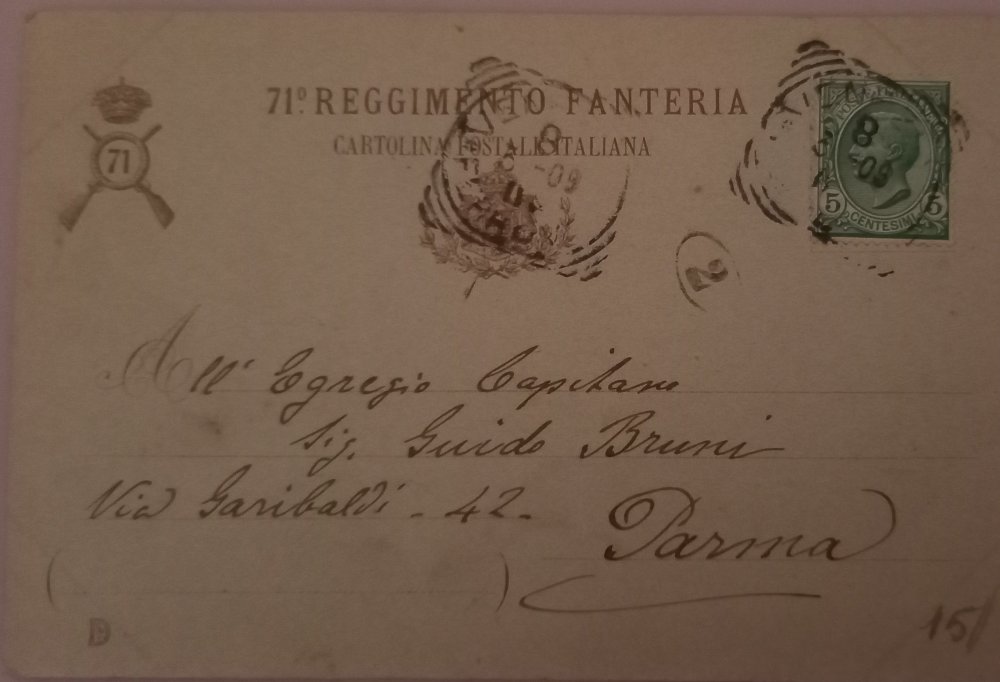 71º REGGIMENTO FANTERIA
CARTOLINA POSTALE ITALIANA
71
8
-09
8
-09
5 5
CENTESIMI
2
All' Egregio Capitano
Sig. Guido Bruni
Via Garibaldi - 42 -
Parma
D
15/